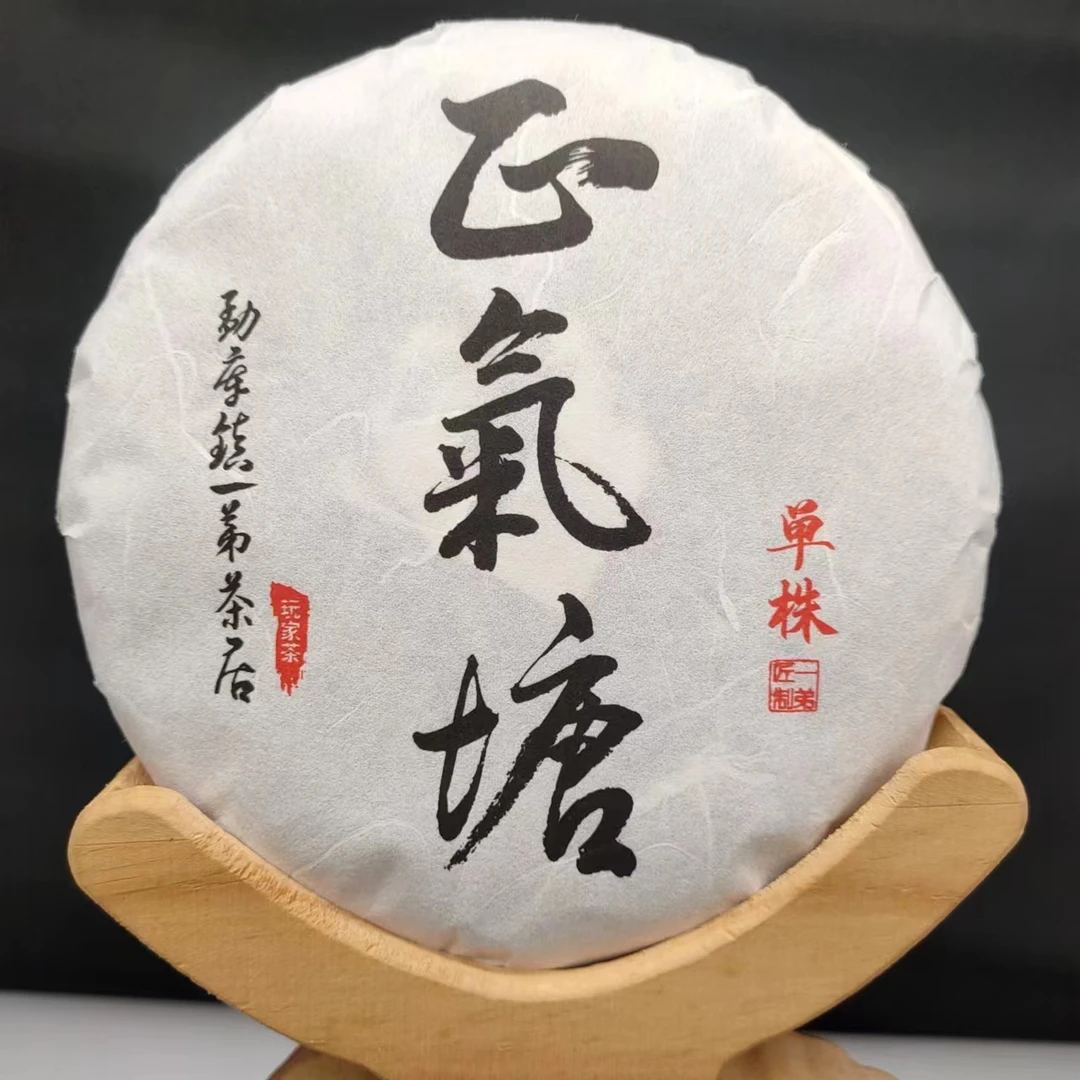 正氣塘
勐库鎮一第茶居
玩家茶
单株
一弟
匠制